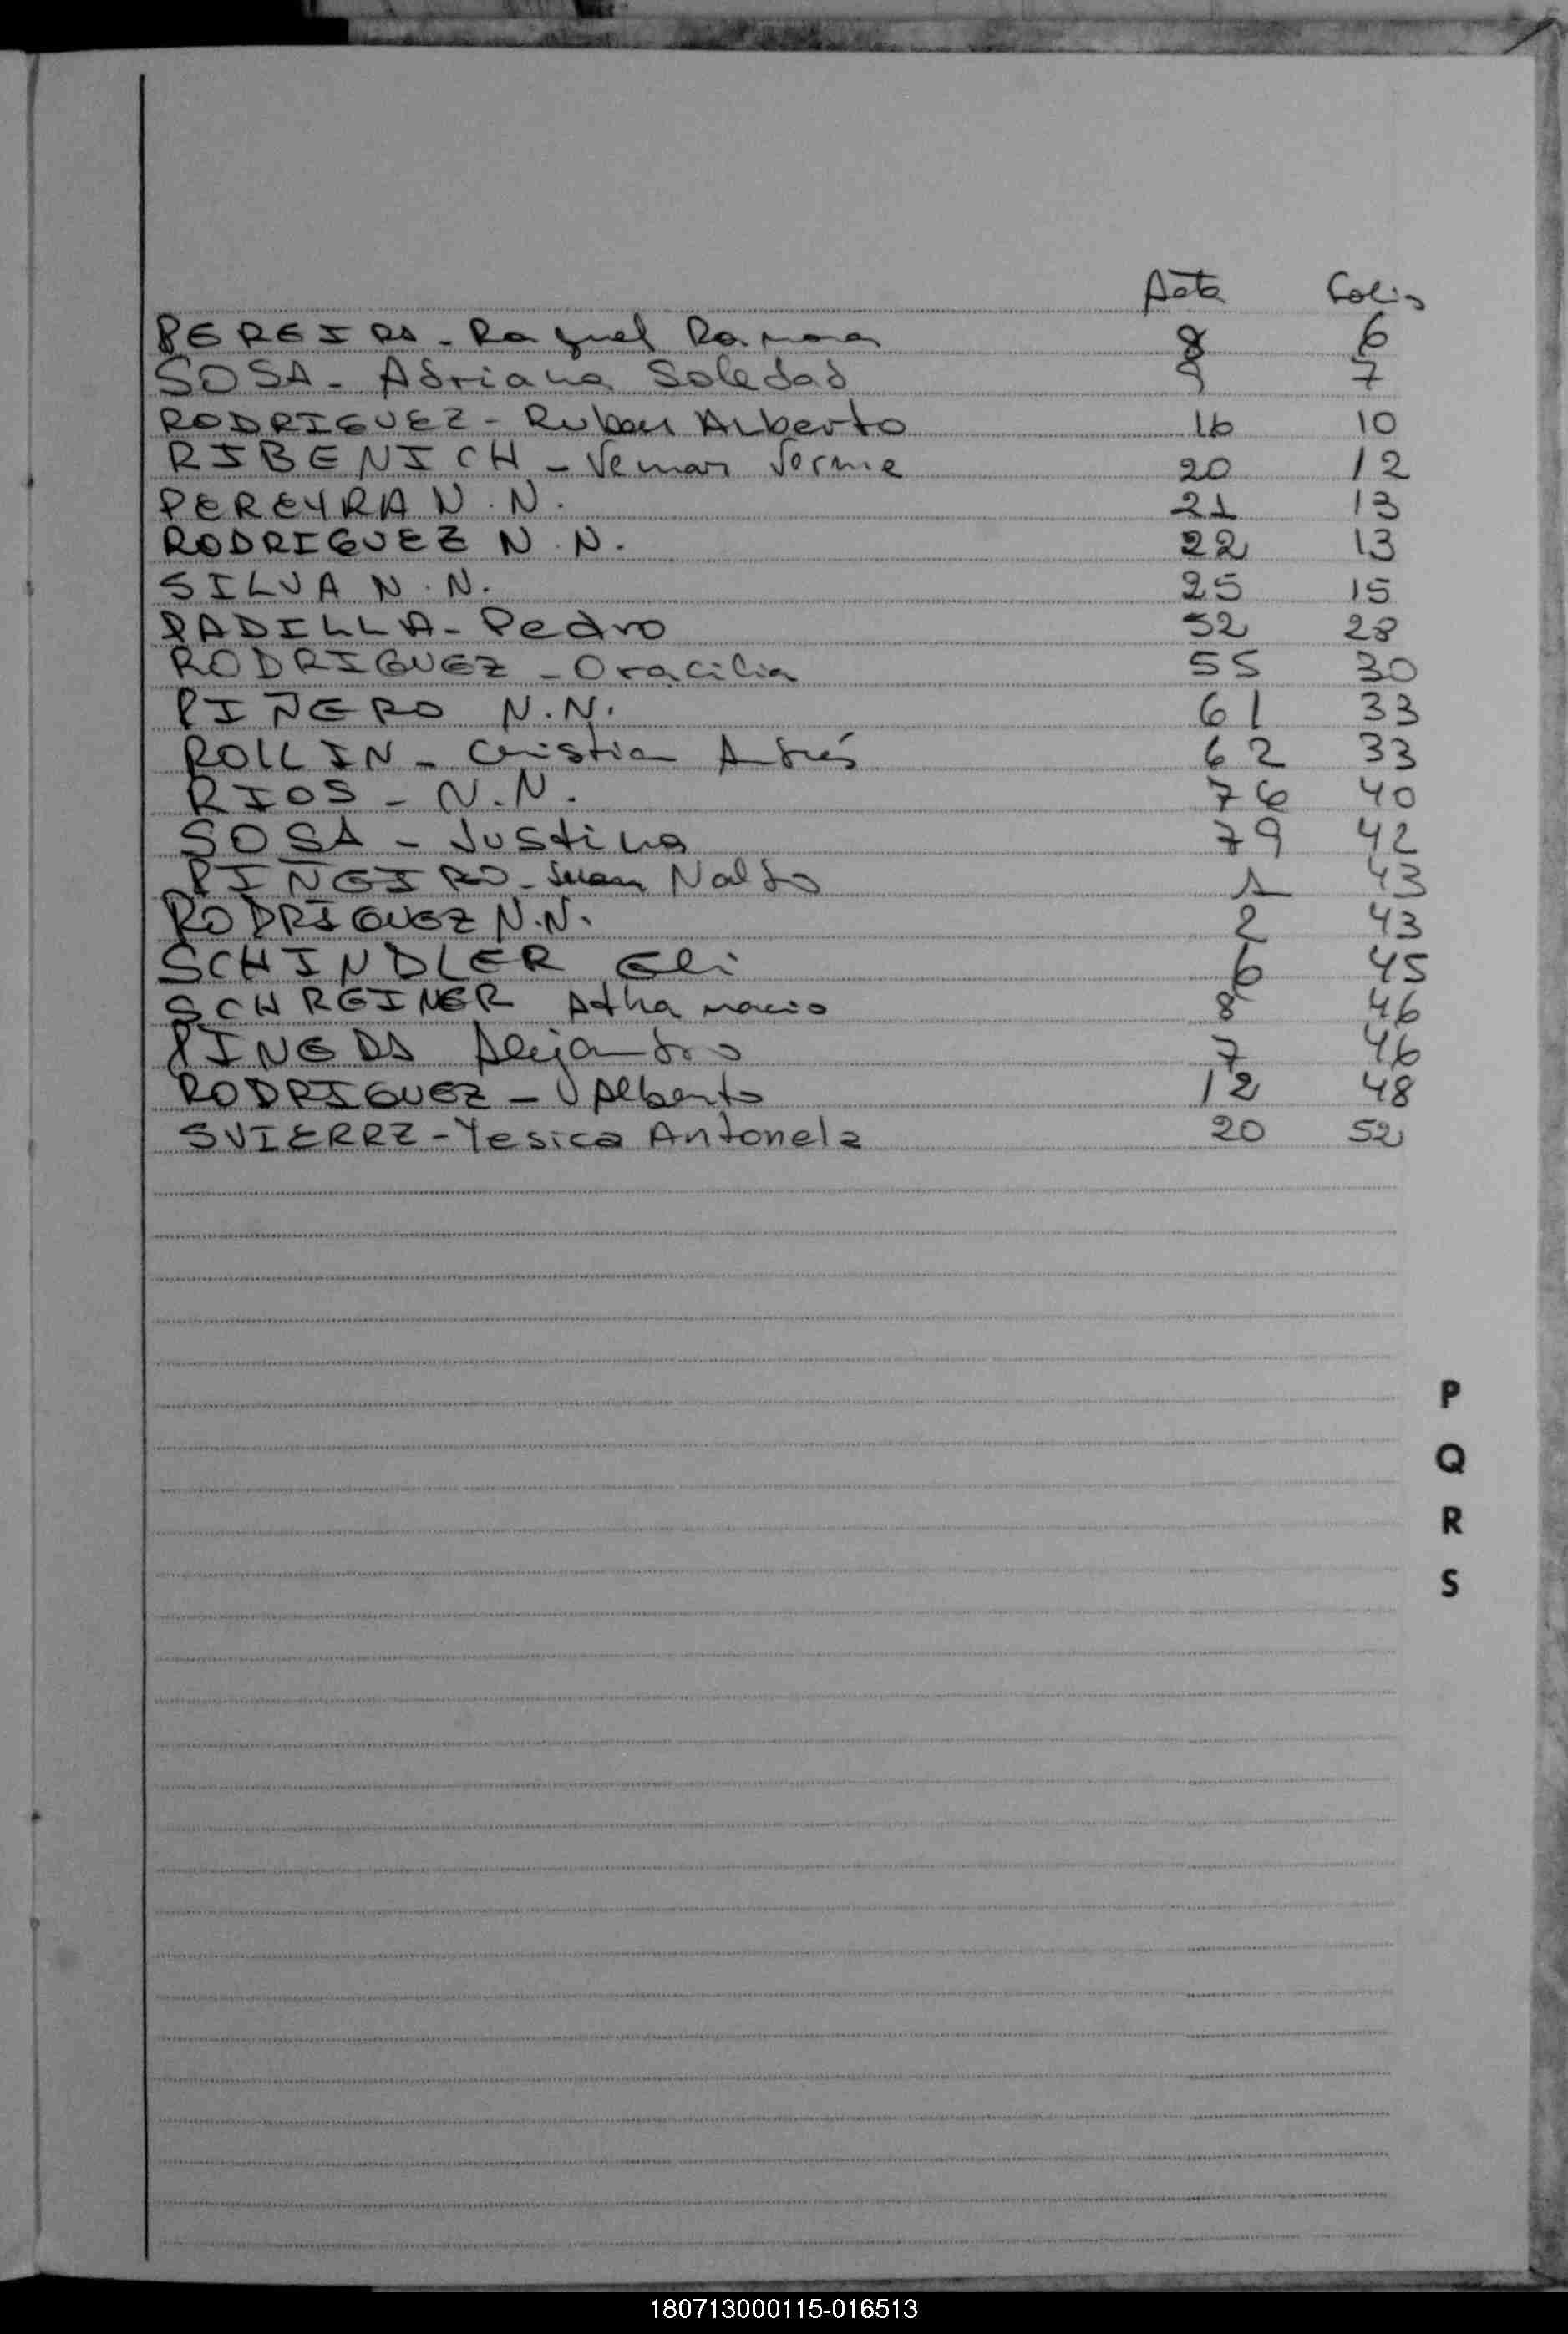 Acta Folio
PEREIRA - Raquel Ramona 8 6
SOSA - Adriana Soledad 9 7
RODRIGUEZ - Ruben Alberto 16 10
RIBENICH - Vemar 20 12
PEREYRA N.N. 21 13
RODRIGUEZ N.N. 22 13
SILVA N.N. 25 15
PADILLA - Pedro 52 28
RODRIGUEZ - Oracilia 55 30
PIÑERO N.N. 61 33
ROLLIN - Cristian Andrés 62 33
RIOS - N.N. 76 40
SOSA - Justina 79 42
PINGEIRO - Juan Naldo 1 43
RODRIGUEZ N.N. 2 43
SCHINDLER Eli 6 45
SCHREINER Athanacio 8 46
PINEDA Alejandro 7 46
RODRIGUEZ - Alberto 12 48
SVIERRZ - Yesica Antonela 20 52
P
Q
R
S
180713000115-016513